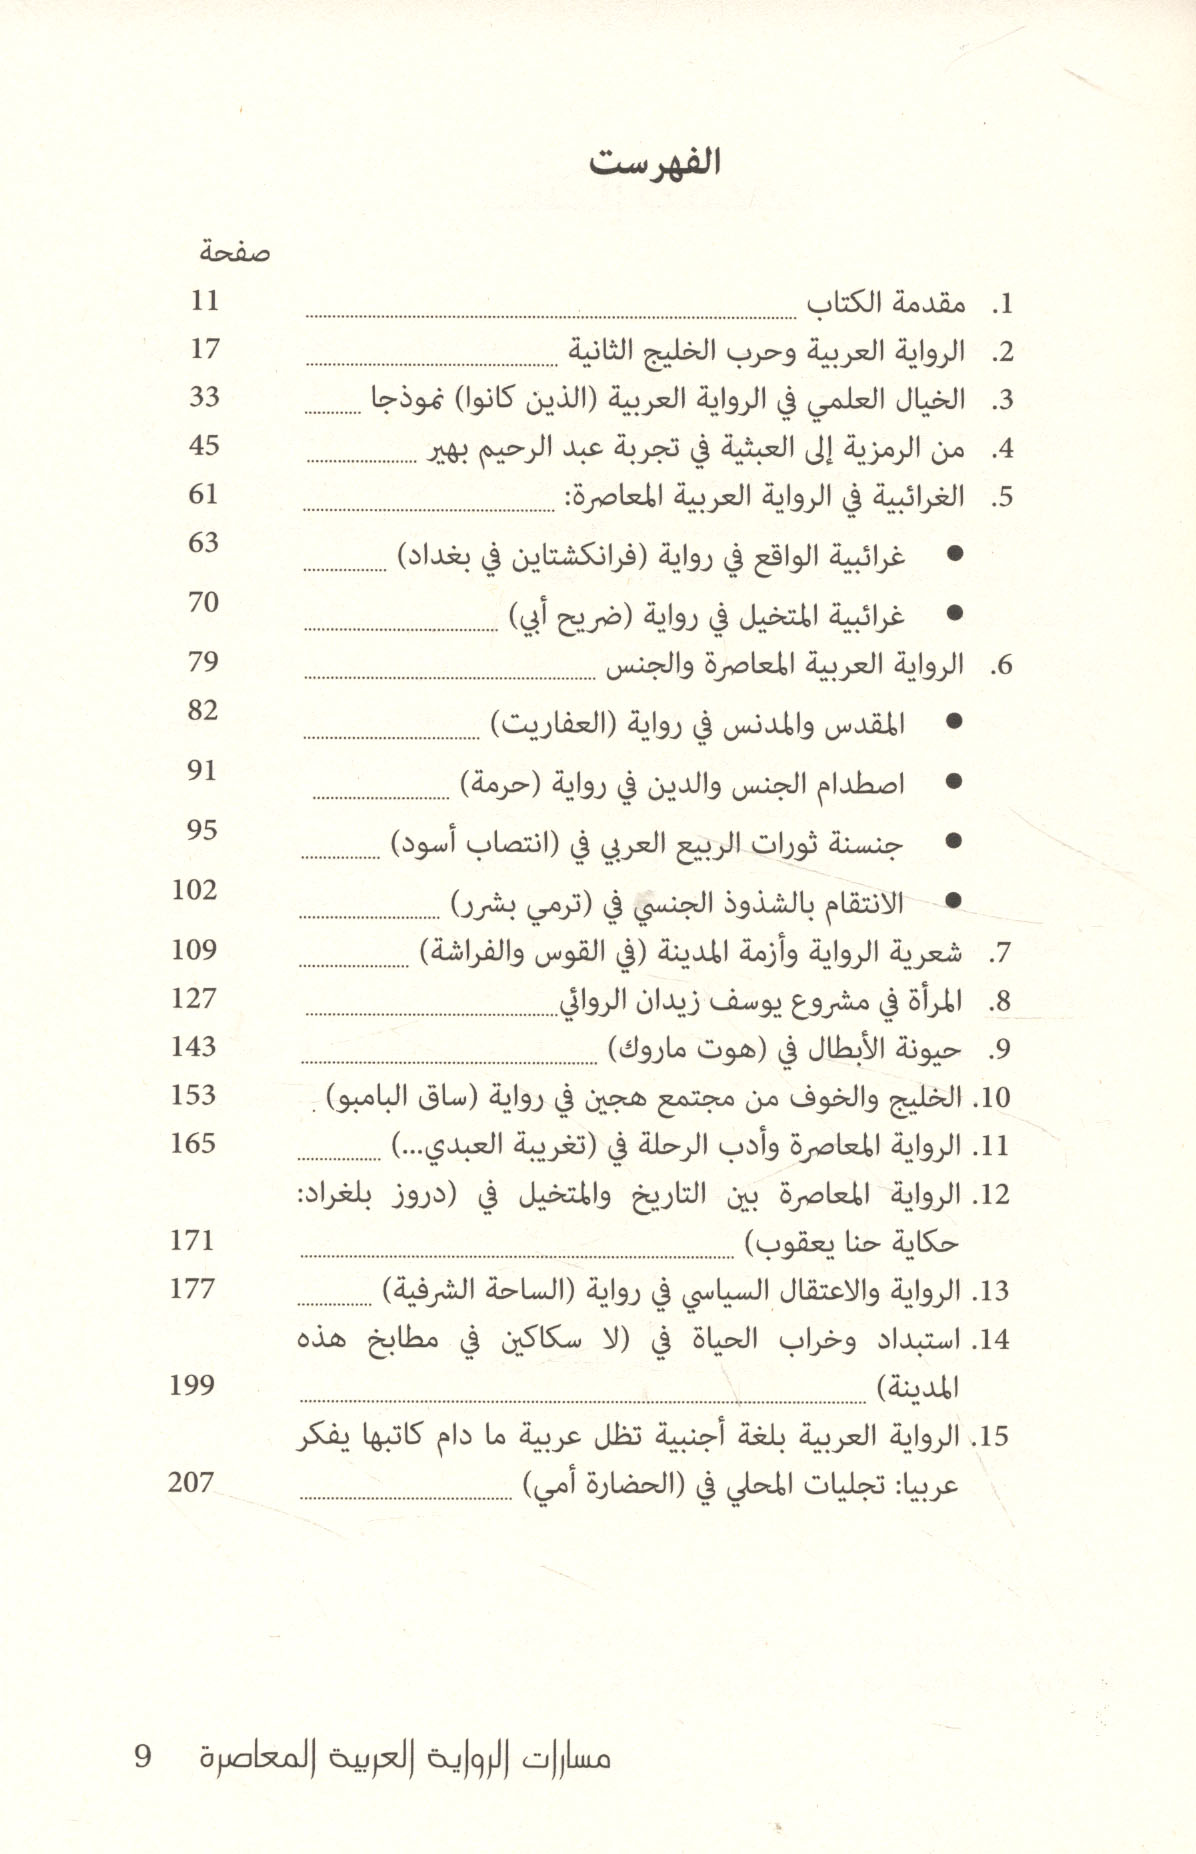 الفهرست
صفحة
1. مقدمة الكتاب 11
2. الرواية العربية وحرب الخليج الثانية 17
3. الخيال العلمي في الرواية العربية (الذين كانوا) نموذجا 33
4. من الرمزية إلى العبثية في تجربة عبد الرحيم بهير 45
5. الغرائبية في الرواية العربية المعاصرة: 61
● غرائبية الواقع في رواية (فرانكشتاين في بغداد) 63
● غرائبية المتخيل في رواية (ضريح أبي) 70
6. الرواية العربية المعاصرة والجنس 79
● المقدس والمدنس في رواية (العفاريت) 82
● اصطدام الجنس والدين في رواية (حرمة) 91
● جنسنة ثورات الربيع العربي في (انتصاب أسود) 95
● الانتقام بالشذوذ الجنسي في (ترمي بشرر) 102
7. شعرية الرواية وأزمة المدينة (في القوس والفراشة) 109
8. المرأة في مشروع يوسف زيدان الروائي 127
9. حيونة الأبطال في (هوت ماروك) 143
10. الخليج والخوف من مجتمع هجين في رواية (ساق البامبو) 153
11. الرواية المعاصرة وأدب الرحلة في (تغريبة العبدي...) 165
12. الرواية المعاصرة بين التاريخ والمتخيل في (دروز بلغراد:
حكاية حنا يعقوب) 171
13. الرواية والاعتقال السياسي في رواية (الساحة الشرفية) 177
14. استبداد وخراب الحياة في (لا سكاكين في مطابخ هذه
المدينة) 199
15. الرواية العربية بلغة أجنبية تظل عربية ما دام كاتبها يفكر
عربيا: تجليات المحلي في (الحضارة أمي) 207
مسارات الرواية العربية المعاصرة 9